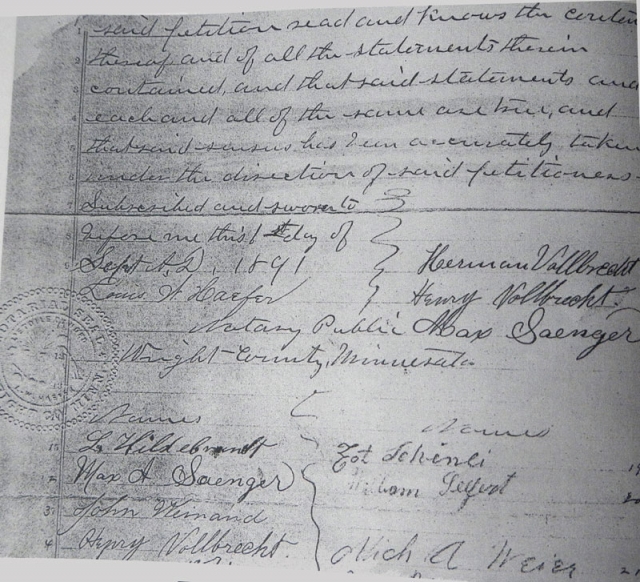 said petition read and knows the conten
thereof and of all the statements therein
contained, and that said statements and
each and all of the same are true, and
that said census has been accurately taken
under the direction of said petitioners
Subscribed and sworn to
before me this 1st day of
Sept A.D. 1891
Herman Vollbrecht
Louis W Haefer
Henry Vollbrecht.
Notary Public
Max Saenger
Wright County, Minnesota
Names
Names
1 L. Hildebrandt
2 Max A Saenger
Seifert
3 John Weinand
4 Henry Vollbrecht.
Mich A Weier